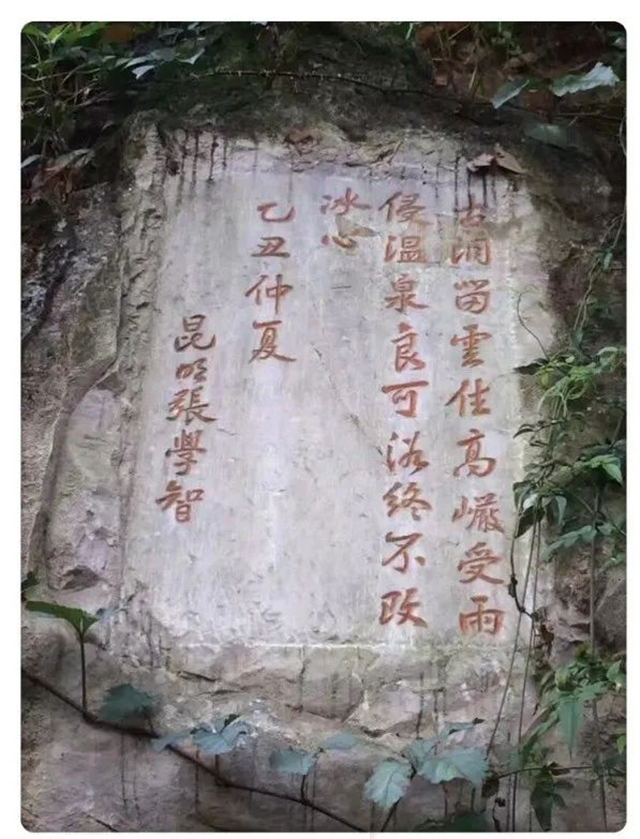 古洞留雲住高巖受雨
侵温泉良可浴終不改
冰心
乙丑仲夏
昆明張學智